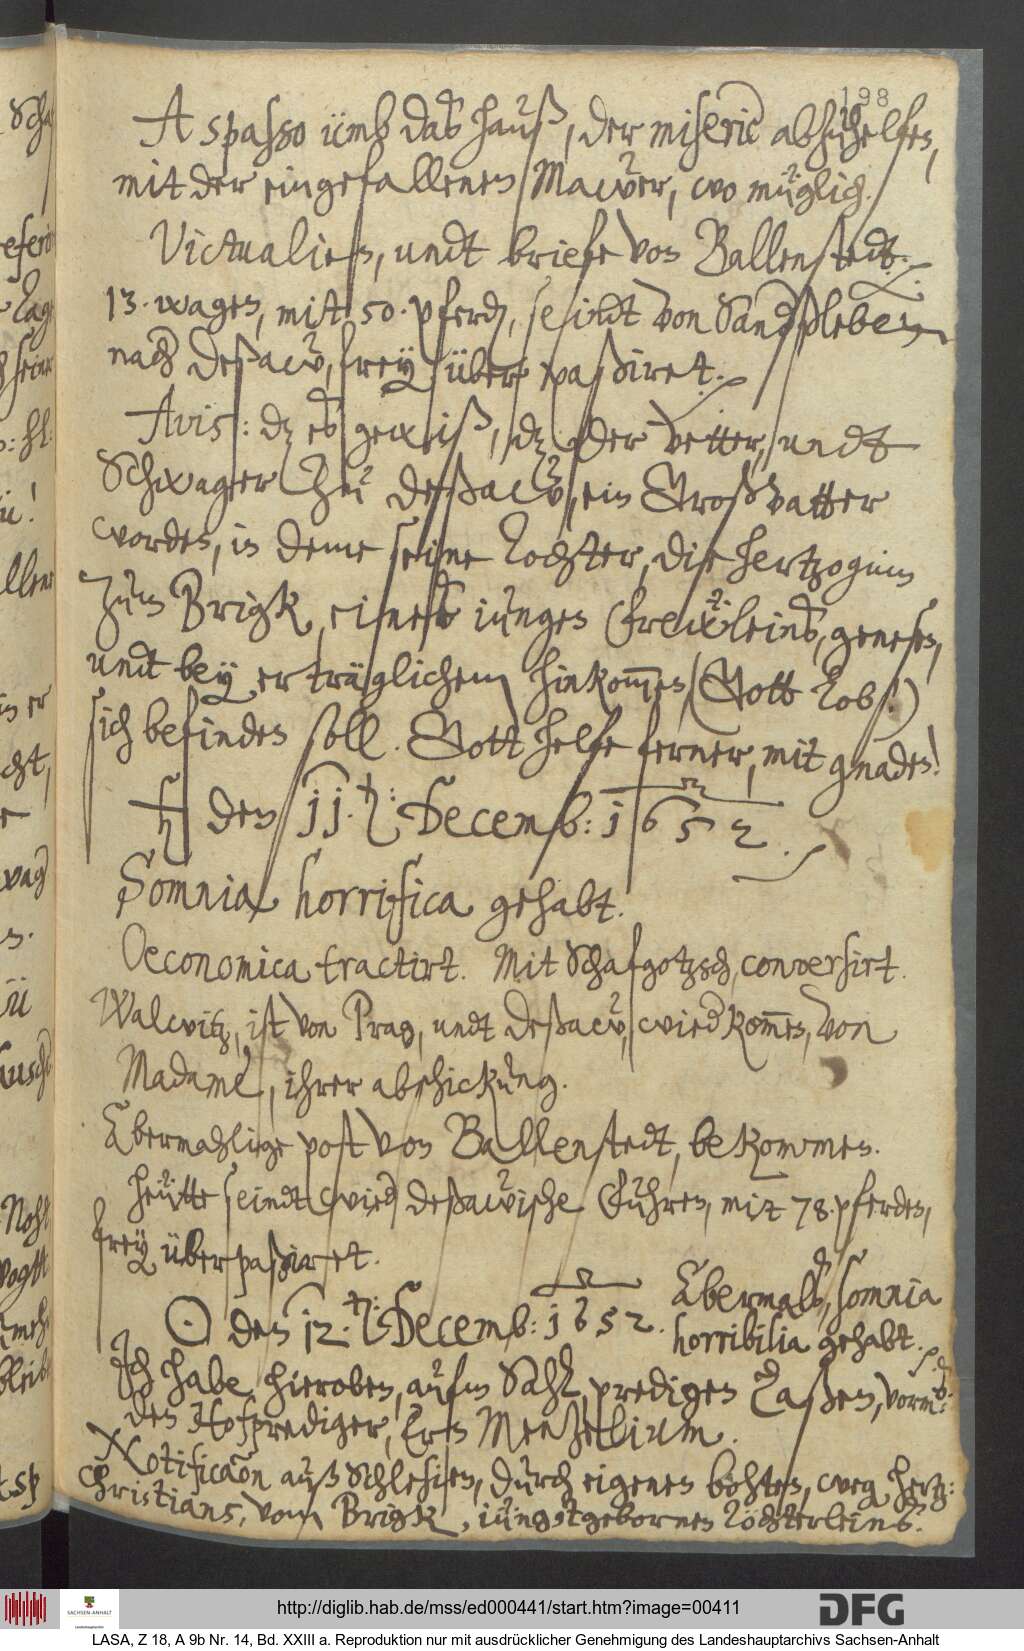 198
A spasso ümb das hauß, der miseric abzuhelfen,
mit der eingefallenen Mawer, wo müglich.
Victualien, undt briefe von Ballenstedt.
13. wagen, mit 50. pferd, seindt von Sandersleben
nach Deßaw, frey über paßiret.
Avis: dz es gewiß, dz der Vetter, undt
Schwager Zu Deßaw, ein Großvatter
worden, in deme seine Tochter, die Hertzoginn
Zum Brigk, eines iungen Frewleins, genesen,
undt bey erträglichem hinkommen, (Gott Lob!)
sich befinden soll. Gott helfe ferner, mit gnaden!
♄ den 11. Decemb: 1652.
Somnia horrifica gehabt.
Oeconomica tractirt. Mit Schafgotzsch, conversirt.
Walwitz, ist von Prag, undt Deßaw, wied kommen, von
Madame, ihrer abschickung.
Abermahlige post von Ballenstedt, bekommen.
Heütte seindt wied Deßawische Fuhren, mit 78. pferden,
frey überpaßiret.
☉ den 12. Decemb: 1652. Abermals, somnia
horribilia gehabt.
Ich habe hieroben, aufm Sahl, predigen laßen, vorm:
den Hofprediger, Ern Menzelium.
Notificaon auß Schlesien, durch eigenen bohten, weg. Hertz:
Christians, vom Brigk, iüngstgebornen Töchterleins.
http://diglib.hab.de/mss/ed000441/start.htm?image=00411
SACHSEN-ANHALT
DFG
LASA, Z 18, A 9b Nr. 14, Bd. XXIII a. Reproduktion nur mit ausdrücklicher Genehmigung des Landeshauptarchivs Sachsen-Anhalt